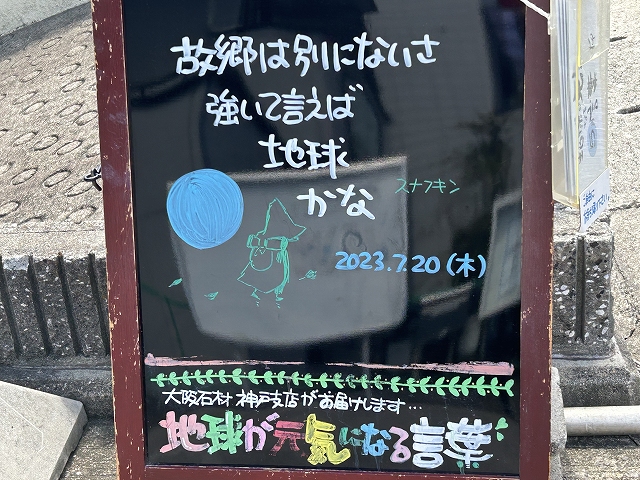 故郷は別にないさ
強いて言えば
地球
かな
スナフキン
2023.7.20(木)
大阪石材 神戸支店がお届けします…
地球が元気になる言葉